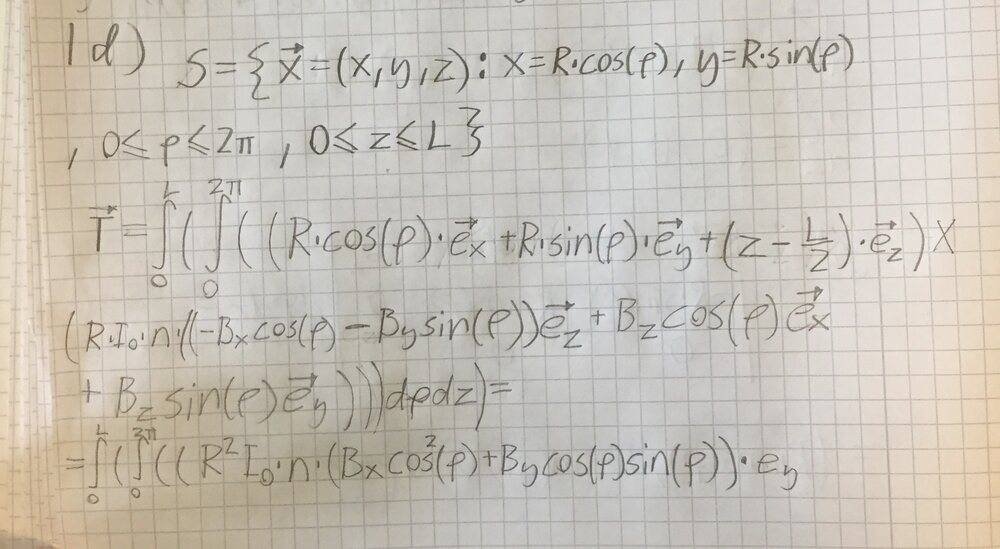 1d) S={x⃗=(x,y,z): x=R·cos(φ), y=R·sin(φ)
, 0≤φ≤2π, 0≤z≤L}
T⃗=∫₀ᴸ(∫₀²π((R·cos(φ)·e⃗x+R·sin(φ)·e⃗y+(z-L/2)·e⃗z)×
(R·I₀·n·((-Bxcos(φ)-Bysin(φ))e⃗z+Bzcos(φ)e⃗x
+Bzsin(φ)e⃗y)))dφdz)=
=∫₀ᴸ(∫₀²π((R²I₀·n·(Bxcos²(φ)+Bycos(φ)sin(φ))·ey